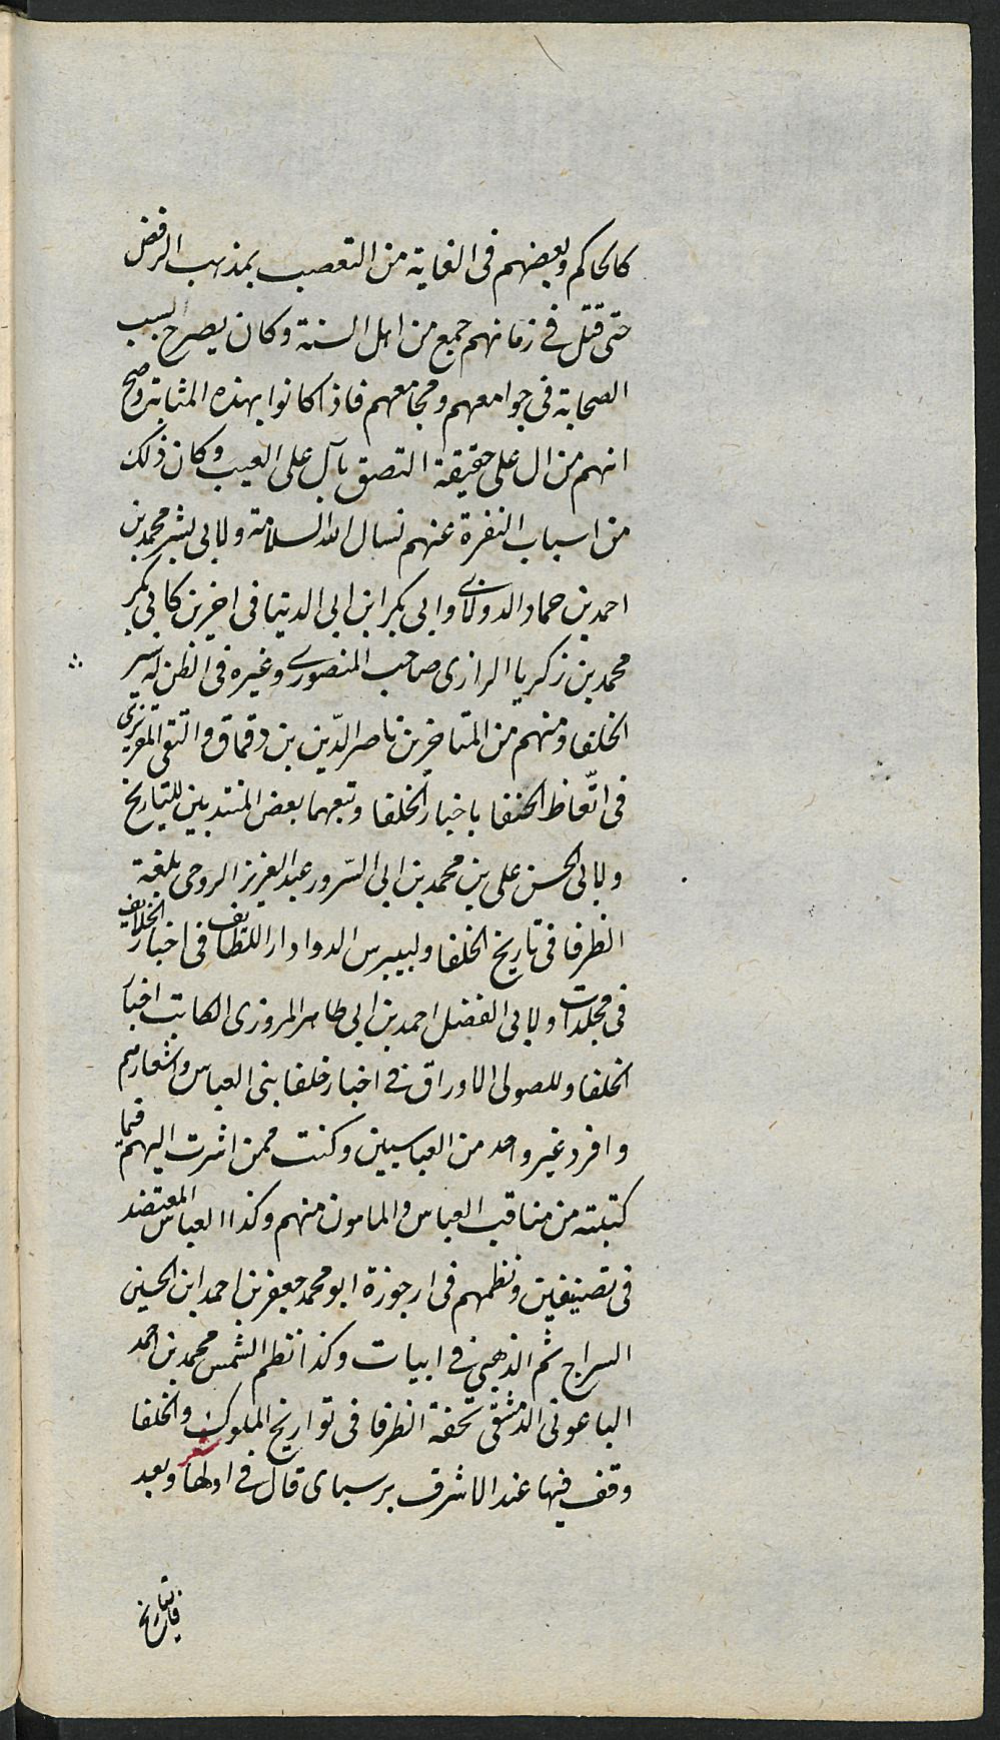 كالحاكم وبعضهم فى الغاية من التعصب بمذهب الرفض
حتى قتل فى زمانهم جميع من اهل السنة وكان يصرح بسب
الصحابة فى جوامعهم ومجامعهم فاذا كانوا بهذه المثابة وصح
انهم من ال على حقيقة التصق بآل على العيب وكان ذلك
من اسباب النفرة عنهم نسال الله السلامة ولابى بشر محمد بن
احمد بن حماد الدولابى وابى بكر ابن ابى الدنيا فى اخرين كابى بكر
محمد بن زكريا الرازى صاحب المنصورى وغيره فى الظن له سير
الخلفا ومنهم من المتاخرين ناصر الدّين بن دقماق والتقى المقريزى
فى اتّعاظ الحنفا باخبار الخلفا وتبعهما بعض المنتدبين للتاريخ
ولابى الحسن على بن محمد بن ابى السّرور عبد العزيز الروحى بلغة
الظرفا فى تاريخ الخلفا ولبيبرس الدوادار اللطايف فى اخبار الخلايف
فى مجلدات ولابى الفضل احمد بن ابى طاهر المروزى الكاتب اخبار
الخلفا وللصولى الاوراق فى اخبار خلفا بنى العباس واشعارهم
وافرد غير واحد من العباسيين وكنت ممن اشرت اليهم فيما
كتبته من مناقب العباس والمامون منهم وكذا العباس المعتضد
فى تصنيفين ونظمهم فى ارجوزة ابو محمد جعفر بن احمد ابن الحسين
السراج ثم الذهبى فى ابيات وكذا نظم الشمس محمد بن احمد
الباعونى الدمشقى تحفة الظرفا فى تواريخ الملوك والخلفا
وقف فيها عند الاشرف برسباى قال فى اولها شعر وبعد
فالتاريخ